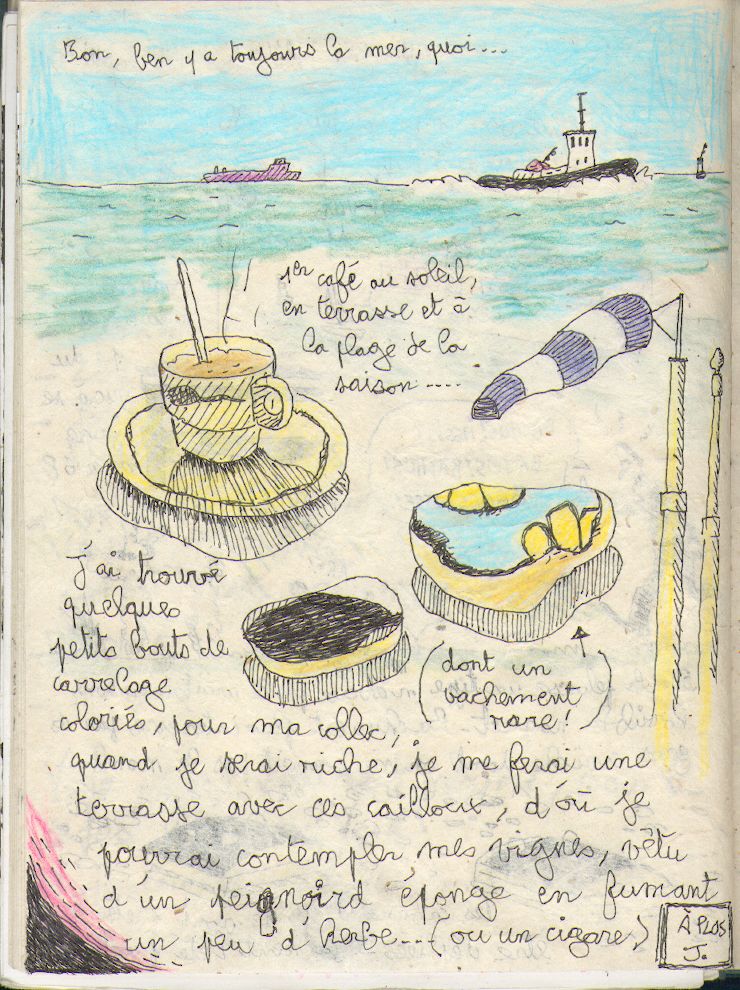 Bon, ben y a toujours la mer, quoi...
1er café au soleil,
en terrasse et à
la plage de la
saison....
J'ai trouvé
quelques
petits bouts de
carrelage
coloriés, pour ma collec,
(dont un
vachement
rare!)
quand je serai riche, je me ferai une
terrasse avec ces cailloux, d'où je
pourrai contempler mes vignes, vêtu
d'un peignoird éponge en fumant
un peu d'herbe...(ou un cigare)
À PLUS
J.